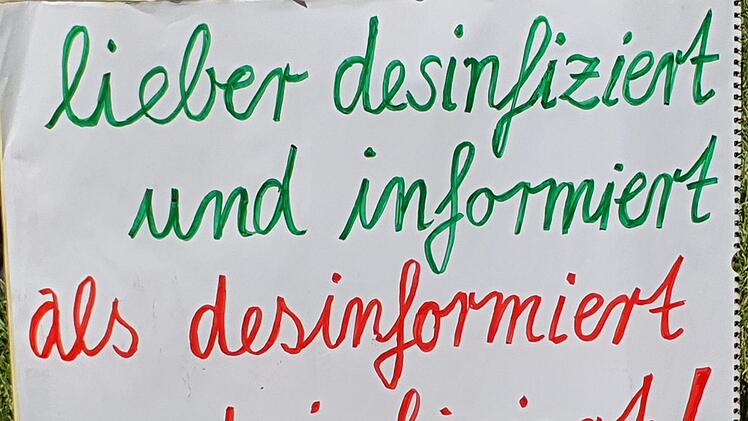 lieber desinfiziert
und informiert
als desinformiert